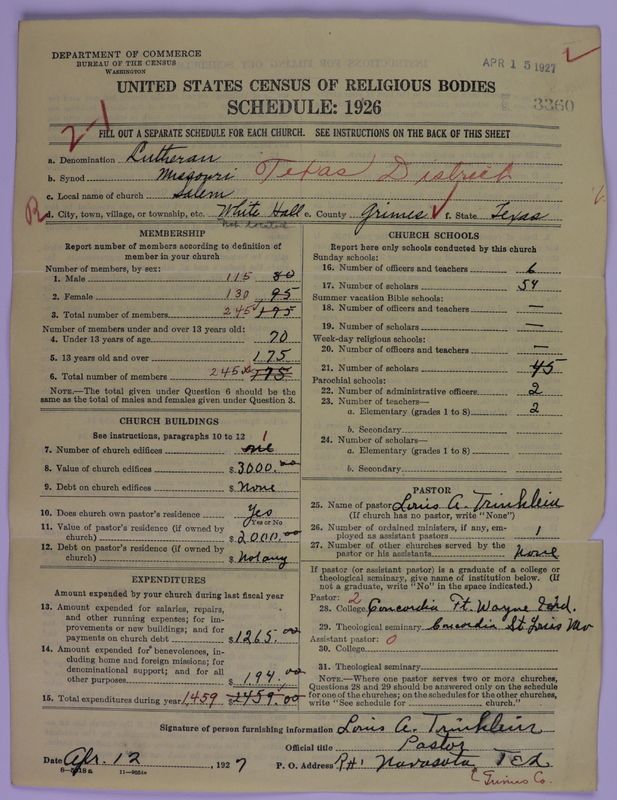 DEPARTMENT OF COMMERCE
BUREAU OF THE CENSUS
WASHINGTON
APR 15 1927
UNITED STATES CENSUS OF RELIGIOUS BODIES
SCHEDULE: 1926
3360
2-1
FILL OUT A SEPARATE SCHEDULE FOR EACH CHURCH. SEE INSTRUCTIONS ON THE BACK OF THIS SHEET
a. Denomination Lutheran
b. Synod Missouri Texas District
c. Local name of church Salem
R d. City, town, village, or township, etc. White Hall e. County Grimes f. State Texas
Not located
MEMBERSHIP
Report number of members according to definition of
member in your church
Number of members, by sex:
1. Male 115 80
2. Female 130 95
3. Total number of members 245 195
Number of members under and over 13 years old:
4. Under 13 years of age 70
5. 13 years old and over 175
6. Total number of members 245 175
NOTE.—The total given under Question 6 should be
same as the total of males and females given under Question 3.
CHURCH BUILDINGS
See instructions, paragraphs 10 to 12
7. Number of church edifices one 1
8. Value of church edifices $3000.00
9. Debt on church edifices $ None
10. Does church own pastor's residence? Yes
Yes or No
11. Value of pastor's residence (if owned by
church) $2000.00
12. Debt on pastor's residence (if owned by
church) $ Not any
EXPENDITURES
Amount expended by your church during last fiscal year
13. Amount expended for salaries, repairs,
and other running expenses; for im-
provements or new buildings; and for
payments on church debt $1265.00
14. Amount expended for benevolences, in-
cluding home and foreign missions; for
denominational support; and for all
other purposes $ 194.00
15. Total expenditures during year 1459 $2459.00
CHURCH SCHOOLS
Report here only schools conducted by this church
Sunday schools:
16. Number of officers and teachers 6
17. Number of scholars 54
Summer vacation Bible schools:
18. Number of officers and teachers —
19. Number of scholars —
Week-day religious schools:
20. Number of officers and teachers —
21. Number of scholars 45
Parochial schools:
22. Number of administrative officers 2
23. Number of teachers—
a. Elementary (grades 1 to 8) 2
b. Secondary
24. Number of scholars—
a. Elementary (grades 1 to 8)
b. Secondary
PASTOR
25. Name of pastor Louis A. Trinklein
(If church has no pastor, write "None")
26. Number of ordained ministers, if any, em-
ployed as assistant pastors 1
27. Number of other churches served by the
pastor or his assistants None
If pastor (or assistant pastor) is a graduate of a college or
theological seminary, give name of institution below. (If
not a graduate, write "No" in the space indicated.)
Pastor: 2
28. College Concordia Ft. Wayne Ind.
29. Theological seminary Concordia St Louis Mo
Assistant pastor: 0
30. College
31. Theological seminary
NOTE.—Where one pastor serves two or more churches,
Questions 28 and 29 should be answered only on the schedule
for one of the churches; on the schedules for the other churches,
write "See schedule for church."
Signature of person furnishing information Louis A. Trinklein
Official title Pastor
Date Apr. 12, 1927 P. O. Address R#1 Navasota Tex
8—3218a 11—9051a
Grimes Co.